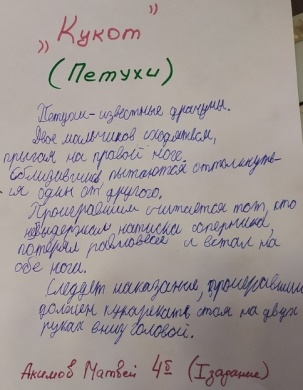 „Кукот"
(Петухи)
Петухи - известные драчуны.
Двое мальчиков сходятся,
прыгая на правой ноге.
Сблизившись пытаются оттолкнуть-
ся один от другого.
Проигравшим считается тот, кто
не выдержал натиска соперника,
потерял равновесие и встал на
обе ноги.
Следует наказание, проигравший
должен кукарекать стоя на двух
руках вниз головой.
Аксёмов Матвей 4б (I задание)